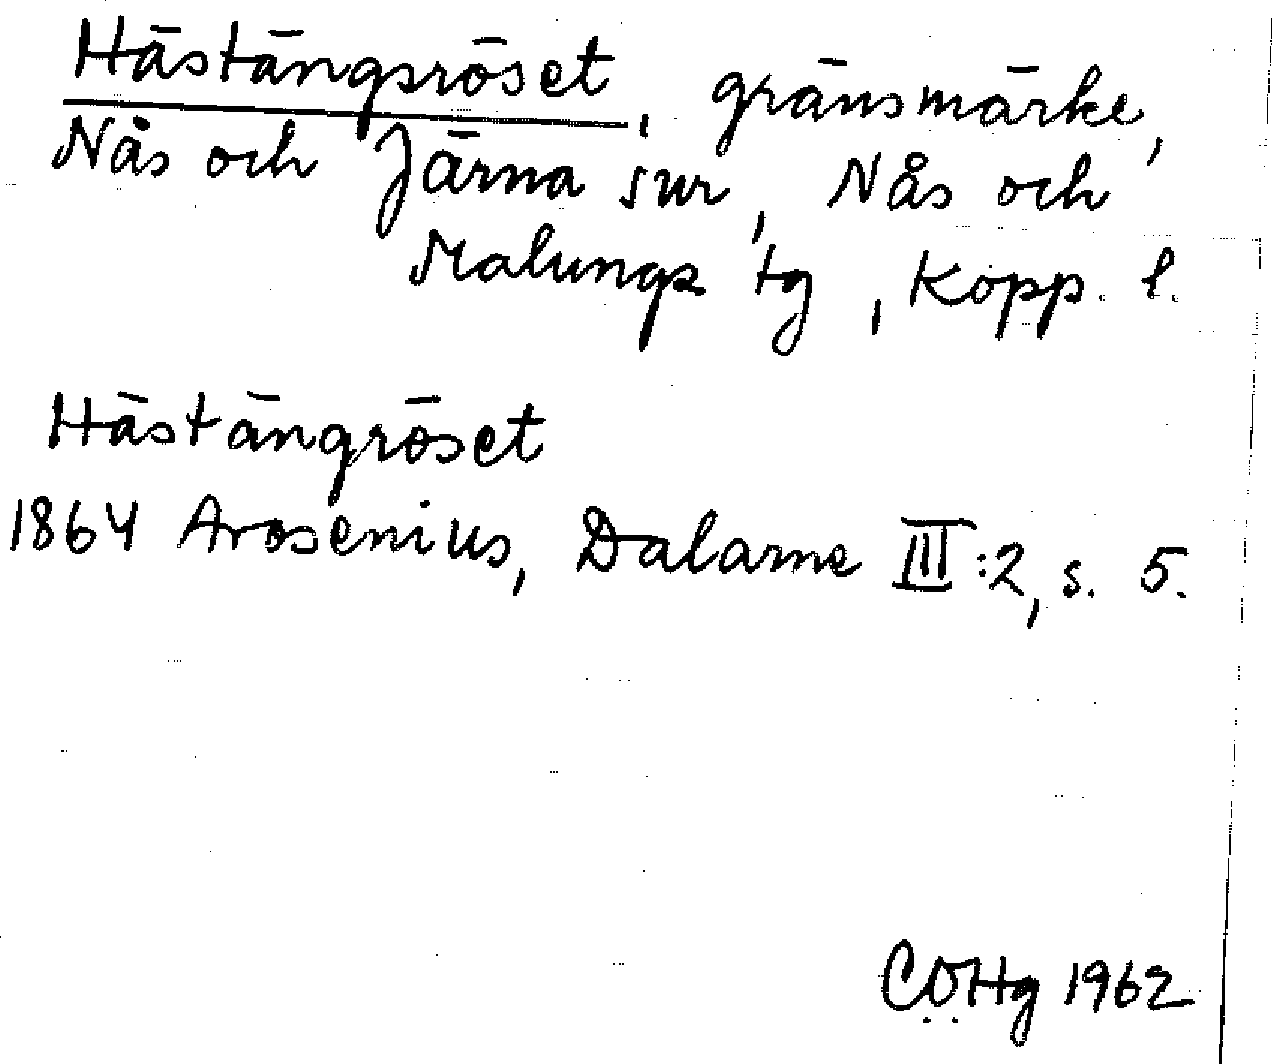 Hästängsröset, gränsmärke,
Nås och Järna snr, Nås och
Malungs tg, Kopp. l.
Hästängröset
1864 Arosenius, Dalarne III:2, s. 5.
CÖHg 1962